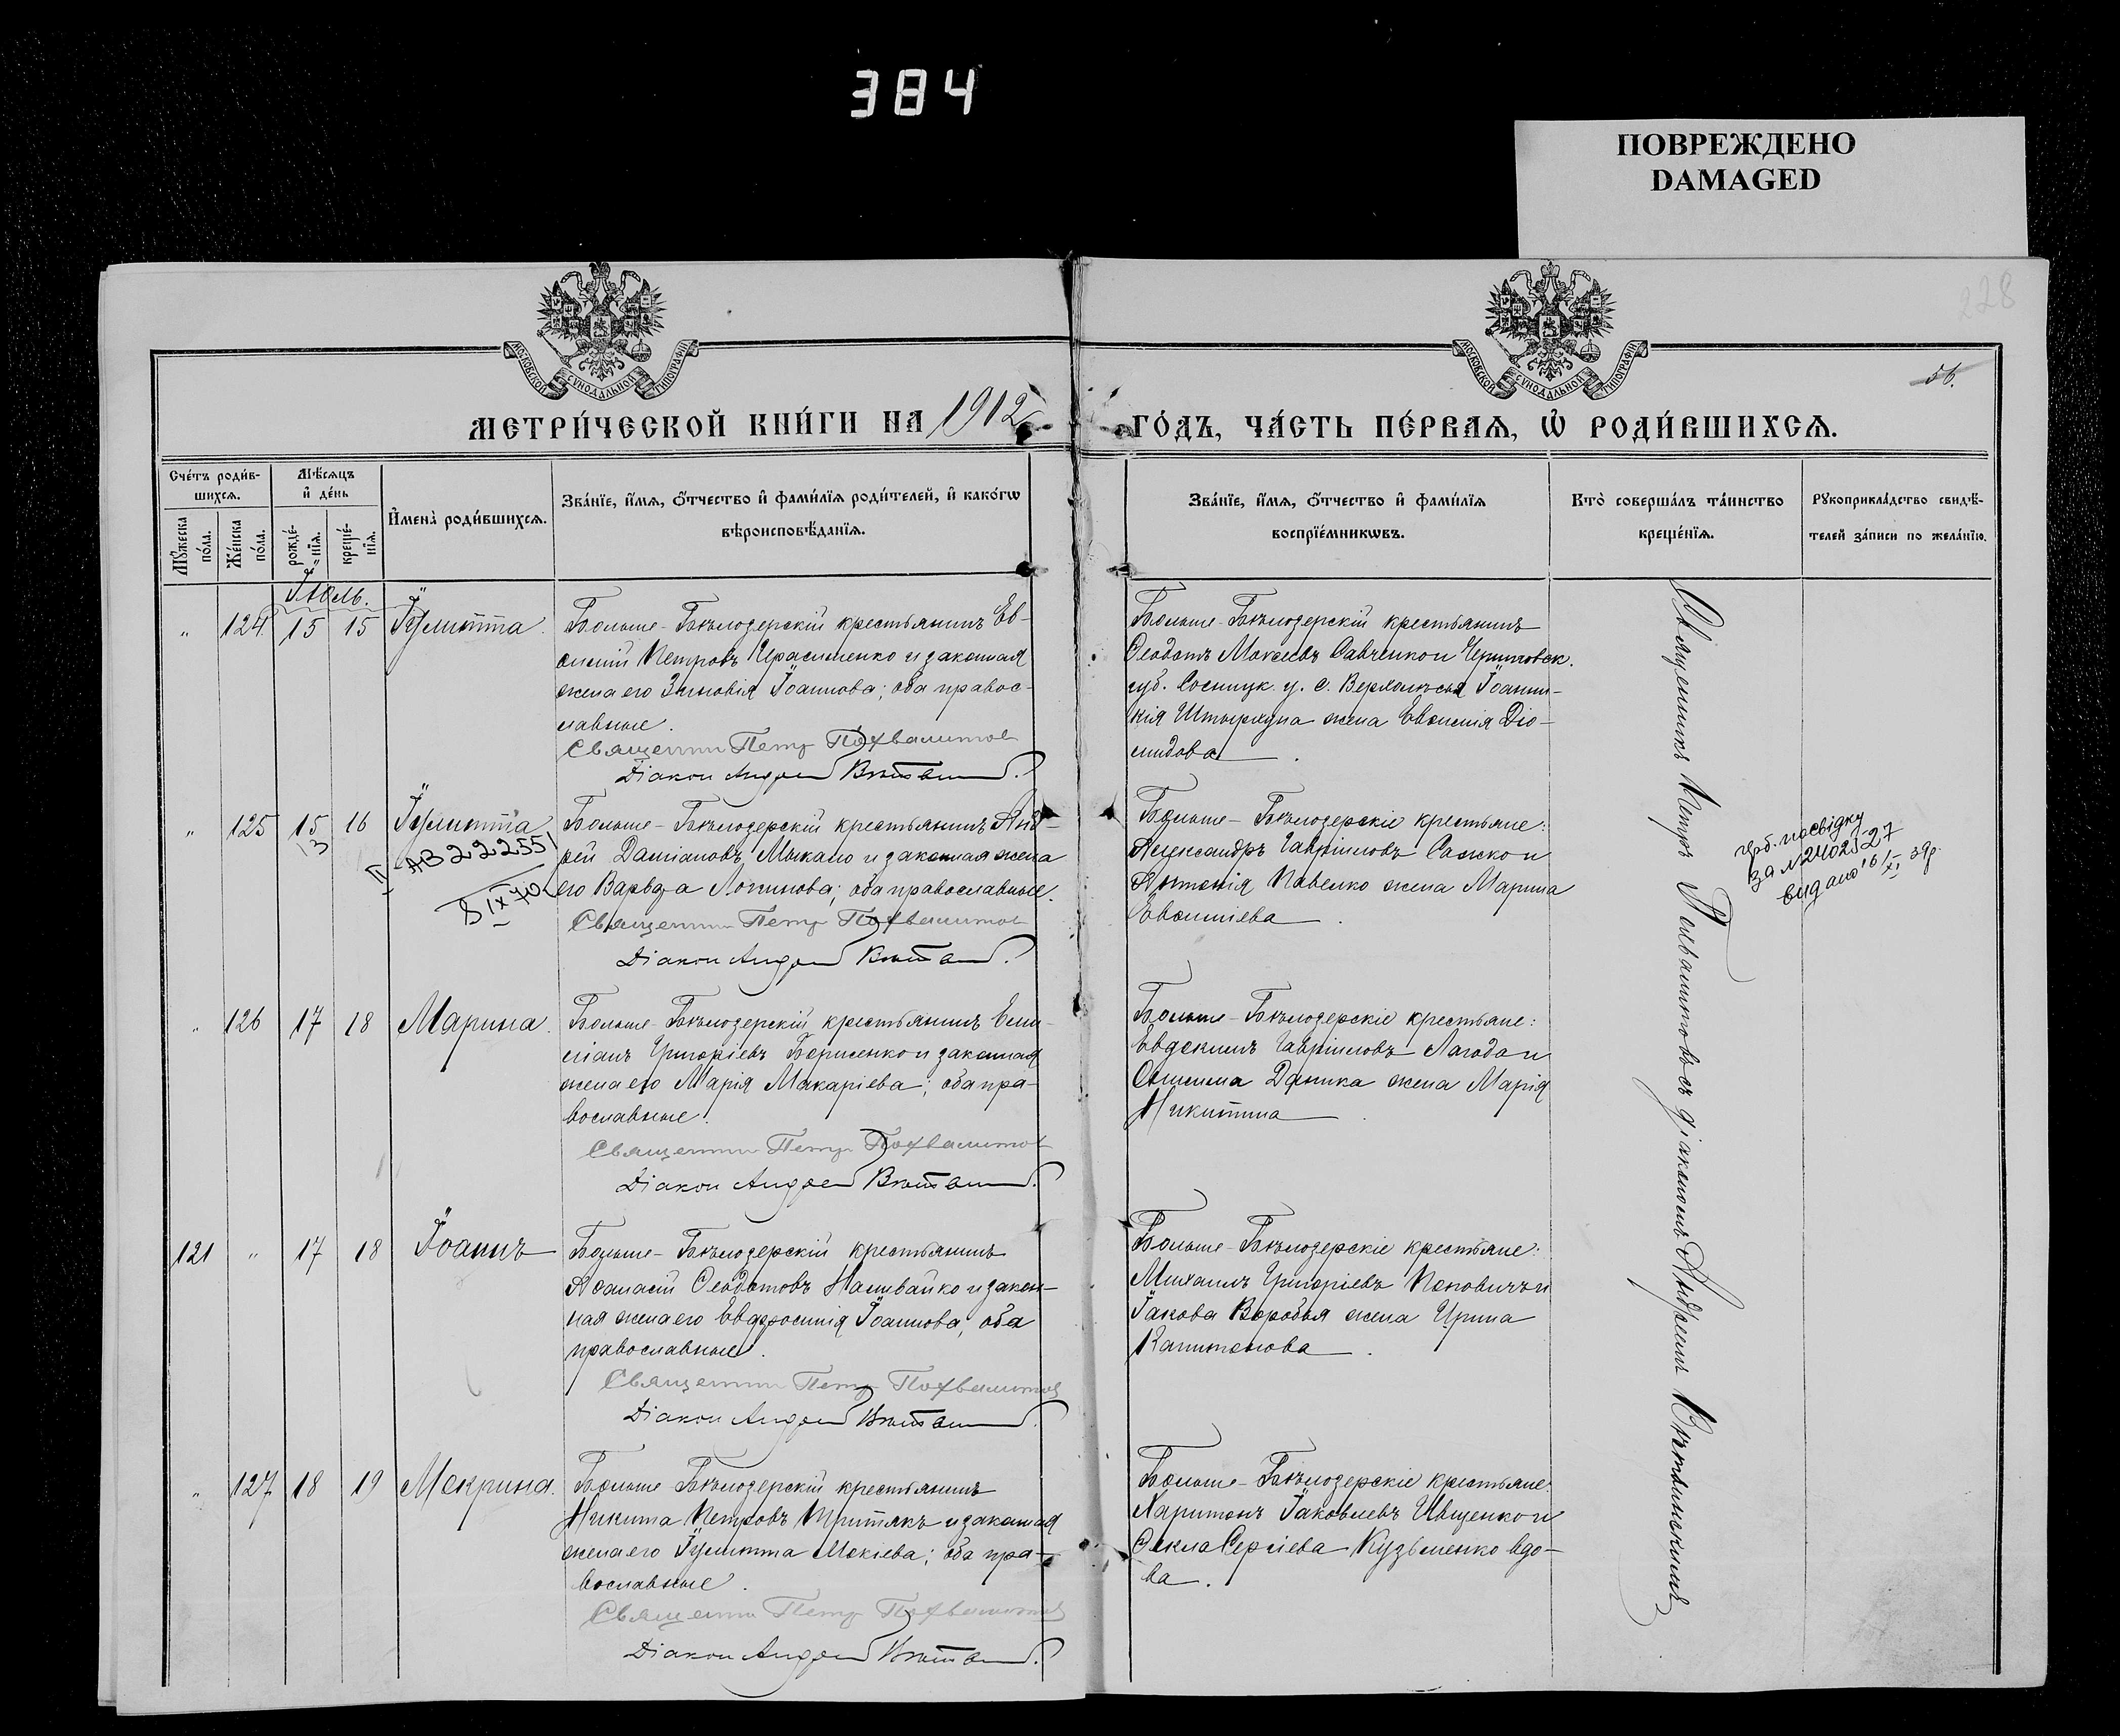 384
ПОВРЕЖДЕНО
DAMAGED
228
56.
МОСКОВСКОЙ СѴНОДАЛЬНОЙ ТИПОГРАФІИ
МОСКОВСКОЙ СѴНОДАЛЬНОЙ ТИПОГРАФІИ
МЕТРИ́ЧЕСКОЙ КНИ́ГИ НА 1912
ГО́ДЪ, ЧА́СТЬ ПЕ́РВАѦ, Ѡ҆ РОДИ́ВШИХСѦ.
Сче́тъ роди́в-
шихсѧ.
Мꙋ́жеска
по́ла.
Же́нска
по́ла.
Мѣ́сѧцъ
и҆ де́нь
рожде́-
нїѧ.
креще́-
нїѧ.
И҆мена̀ роди́вшихсѧ.
Зва́нїе, и҆́мѧ, ѻ҆́тчество и҆ фами́лїѧ роди́телей, и҆ како́гѡ
вѣроисповѣ́данїѧ.
Зва́нїе, и҆́мѧ, ѻ҆́тчество и҆ фами́лїѧ
воспрїе́мникѡвъ.
Кто̀ соверша́лъ та́инство
креще́нїѧ.
Рꙋкоприкла́дство свидѣ́-
телей за́писи по жела́нїю.
Іюль.
„ 124 15 15 Іулитта.
Больше-Бѣлозерскій крестьянинъ Ев-
фимій Петровъ Герасименко и законная
жена его Зиновія Іоаннова; оба правос-
лавные.
Священник Петр Похвалитов
Діакон Андрей
Больше-Бѣлозерскій крестьянинъ
Ѳеодотъ Моѵсеевъ Савченко и Черниговск.
губ. Сосницк. у. с. Іоанни-
кія жена Евфимія Діо-
мидова.
„ 125 15 16 Іулитта
13
II-АВ 222551
8 IX 70
Больше-Бѣлозерскій крестьянинъ Анд-
рей Даміановъ Мыкало и законная жена
его Варвара Логинова; оба православные.
Священник Петр Похвалитов
Діакон Андрей
Больше-Бѣлозерскіе крестьяне:
Александръ Гавріиловъ Сажко и
Антонія Павелко жена Марина
Евфиміева.
посвідку
за № 2402527
видано 16/XI 39р.
„ 126 17 18 Марина.
Больше-Бѣлозерскій крестьянинъ Еми-
ліанъ Григоріевъ Борисенко и законная
жена его Марія Макаріева; оба пра-
вославные.
Священник Петр Похвалитов
Діакон Андрей
Больше-Бѣлозерскіе крестьяне:
Евдокимъ Гавріиловъ Лагода и
Онисима Даника жена Марія
Никитина.
121 „ 17 18 Іоаннъ
Больше-Бѣлозерскій крестьянинъ
Аѳанасій Ѳеодотовъ Наливайко и закон-
ная жена его Евфросинія Іоаннова; оба
православные.
Священник Петр Похвалитов
Діакон Андрей
Больше-Бѣлозерскіе крестьяне:
Михаилъ Григоріевъ Поповичъ и
Іакова Воробья жена Ирина
Капитонова.
„ 127 18 19 Макрина.
Больше-Бѣлозерскій крестьянинъ
Никита Петровъ Притякъ и законная
жена его Іулитта Мокіева; оба пра-
вославные.
Священник Петр Похвалитов
Діакон Андрей
Больше-Бѣлозерскіе крестьяне:
Харитонъ Іаковлевъ Иващенко и
Ѳекла Сергіева Кузьменко вдо-
ва.
Священникъ Петръ Похвалитовъ съ діакономъ Андреемъ